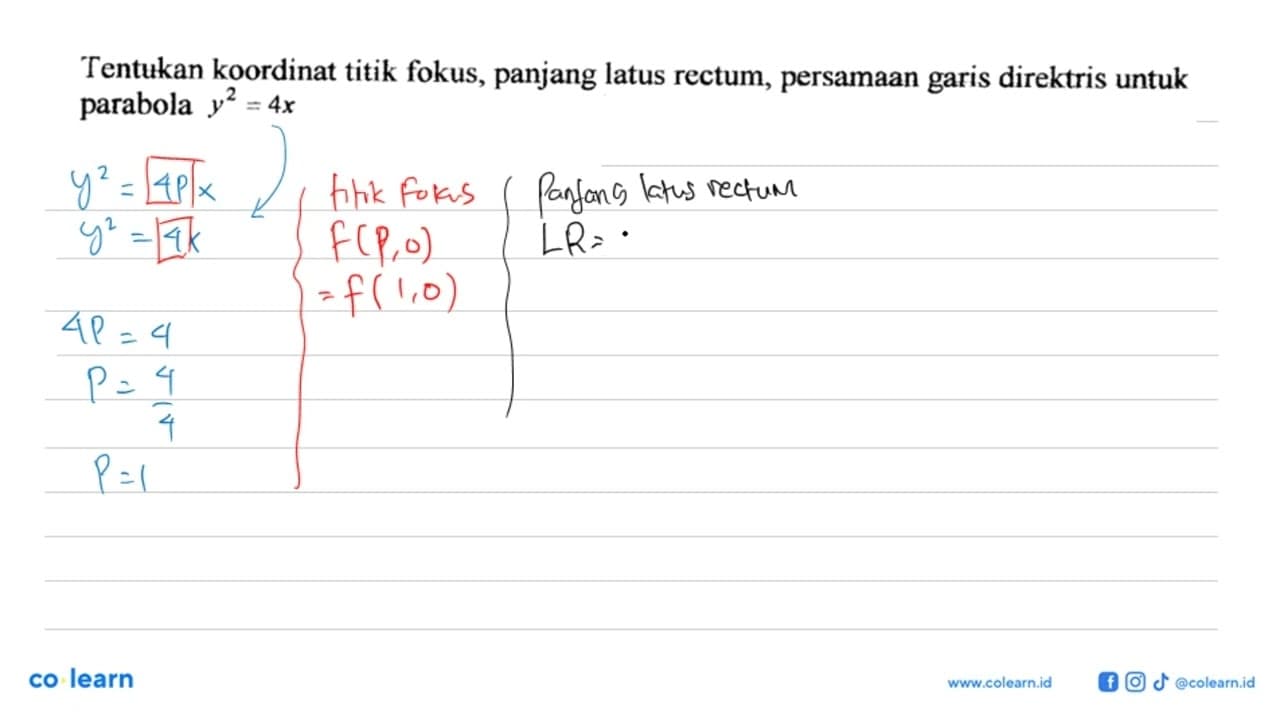 Tentukan koordinat titik fokus, panjang latus rectum, persamaan garis direktris untuk
parabola y² = 4x
y² = 4P x
y² = 4x
4P = 4
P = 4/4
P = 1
titik Fokus
f(P,0)
= f(1,0)
Panjang latus rectum
LR = .
co learn
www.colearn.id
@colearn.id